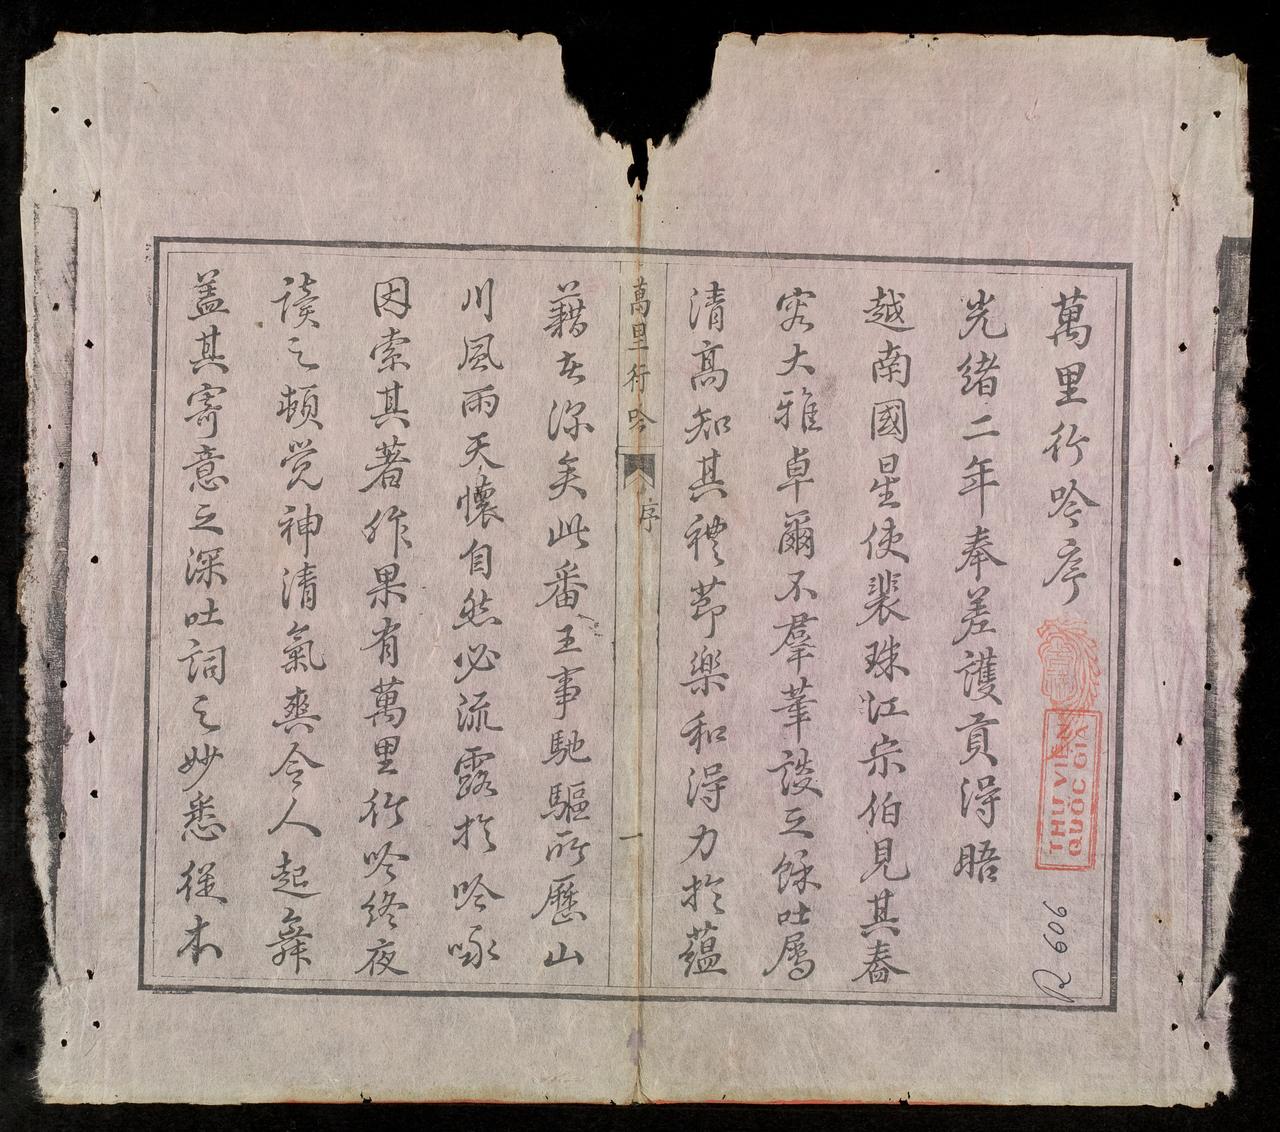 萬里行吟序
光緒二年奉差護貢得晤
越南國星使裴珠江宗伯見其春
容大雅卓爾不羣華談之餘吐屬
清高知其禮節樂和得力於蘊
藉者深矣此番王事馳驅所歷山
川風雨天懷自然必流露於吟啄
因索其著作果有萬里行吟終夜
讀之頓覺神清氣爽令人起舞
蓋其寄意之深吐詞之妙悉從本
萬里行吟
序
一
THU VIEN
QUOC GIA
R 606